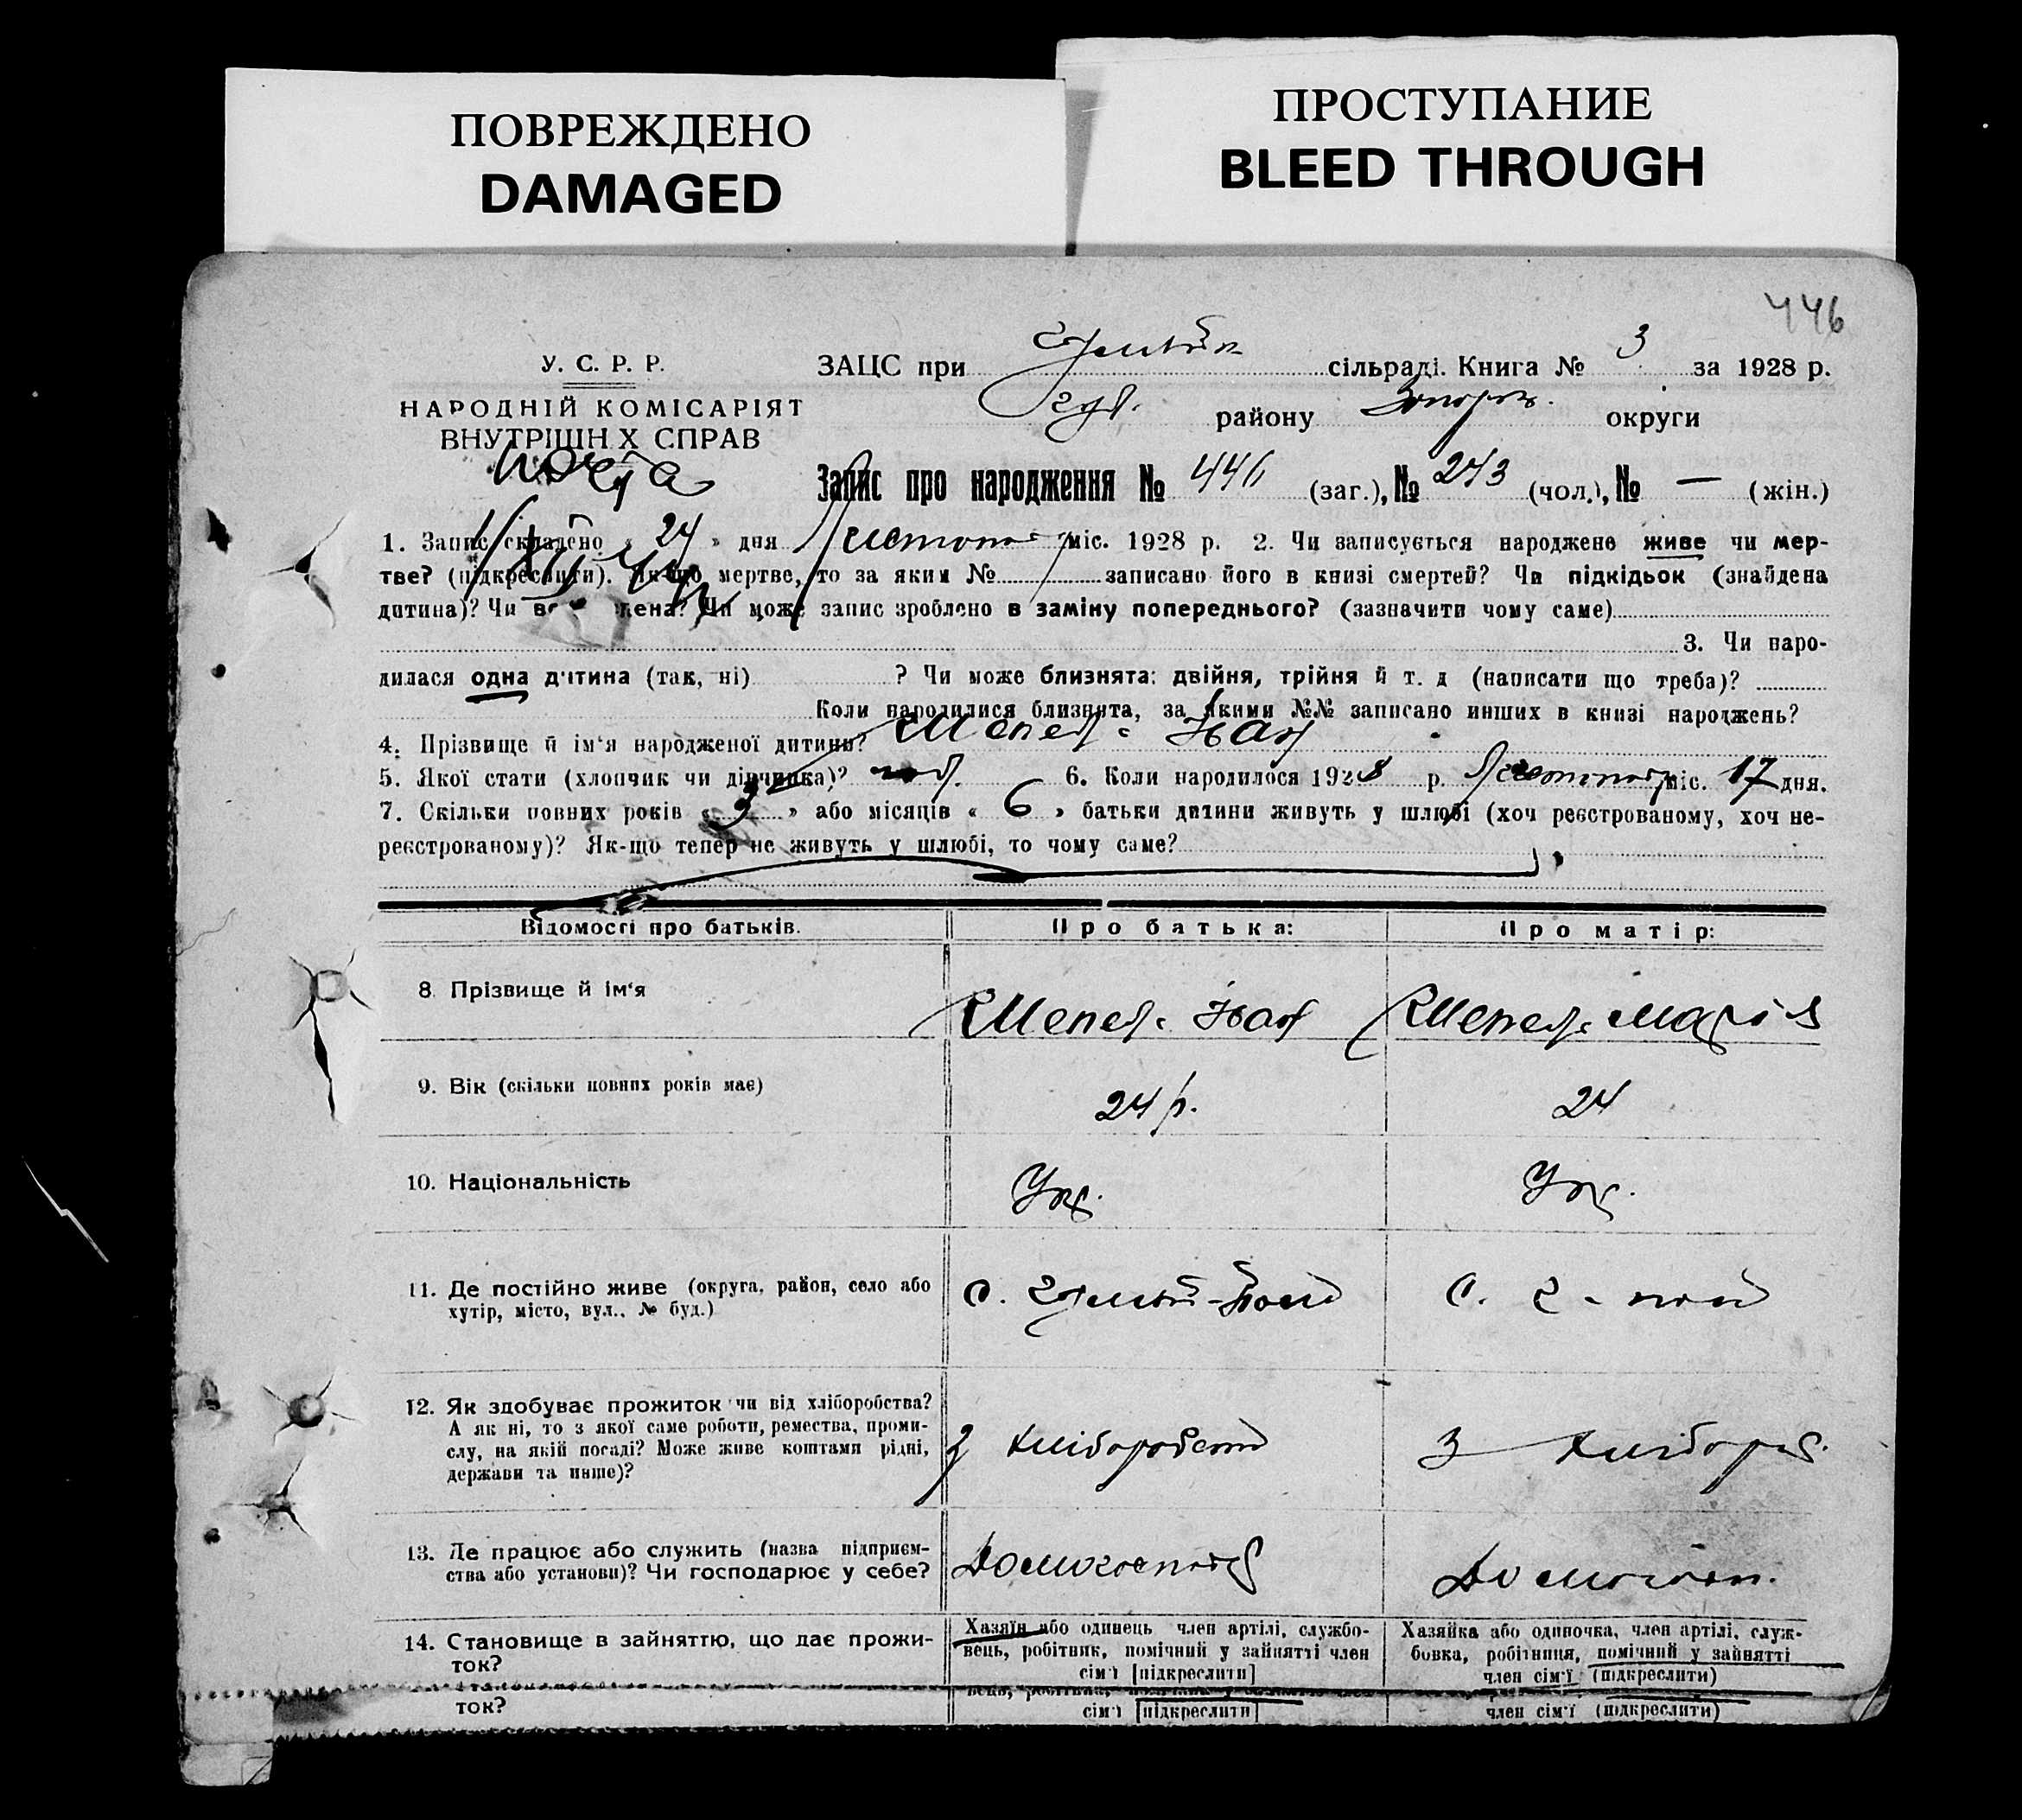 ПОВРЕЖДЕНО
DAMAGED
ПРОСТУПАНИЕ
BLEED THROUGH
446
У. С. Р. Р.
НАРОДНІЙ КОМІСАРІЯТ
ВНУТРІШН Х СПРАВ
копія
ЗАЦС при сільраді. Книга № 3 за 1928 р.
району Запоріз. округи
Запис про народження № 446 (заг.), № 243 (чол.), № — (жін.)
1. Запис складено « 24 » дня Листопа міс. 1928 р. 2. Чи записується народжене живе чи мер-
тве? (підкреслити). Як-що мертве, то за яким № записано його в книзі смертей? Чи підкідьок (знайдена
дитина)? Чи може запис зроблено в заміну попереднього? (зазначити чому саме)
3. Чи наро-
дилася одна дитина (так, ні) ? Чи може близнята: двійня, трійня й т. д (написати що треба)?
Коли народилися близнята, за якими №№ записано инших в книзі народжень?
4. Прізвище й ім'я народженої дитини? Шепел. Іван
5. Якої стати (хлопчик чи дівчинка)? 6. Коли народилося 1928 р. Листопад міс. 17 дня.
7. Скільки повних років « 3 » або місяців « 6 » батьки дитини живуть у шлюбі (хоч реєстрованому, хоч не-
реєстрованому)? Як-що тепер не живуть у шлюбі, то чому саме?
Відомості про батьків. Про батька: Про матір:
8. Прізвище й ім'я Шепел. Іван Шепел. Марія
9. Вік (скільки повних років має) 24 р. 24
10. Національність Укр. Укр.
11. Де постійно живе (округа, район, село або
хутір, місто, вул., № буд.) с. с.
12. Як здобуває прожиток чи від хліборобства?
А як ні, то з якої саме роботи, ремества, проми-
слу, на якій посаді? Може живе коштами рідні,
держави та инше)? З хліборобства З хлібороб.
13. Де працює або служить (назва підприєм-
ства або установи)? Чи господарює у себе? Домогоспод Домогосп.
14. Становище в зайняттю, що дає прожи-
ток?
Хазяїн або одинець член артілі, службо-
вець, робітник, помічний у зайнятті член
сім'ї [підкреслити]
Хазяйка або одиночка, член артілі, служ-
бовка, робітниця, помічний у зайнятті
член сім'ї (підкреслити)
ток? сім'ї [підкреслити] член сім'ї (підкреслити)